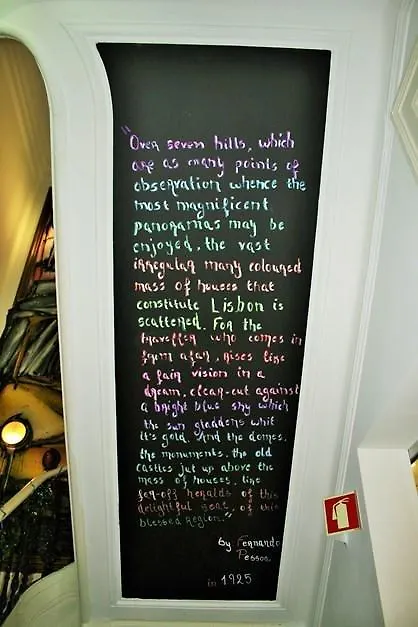 "Over seven hills, which
are as many points of
observation whence the
most magnificent
panoramas may be
enjoyed, the vast
irregular many coloured
mass of houses that
constitute Lisbon is
scattered. For the
traveller who comes in
from afar, rises like
a fair vision in a
dream, clear-cut against
a bright blue sky which
the sun gladdens whit
it's gold. And the domes,
the monuments, the old
castles jut up above the
mass of houses, like
far-off heralds of this
delightful seat, of this
blessed region."
by Fernando
Pessoa
in 1925